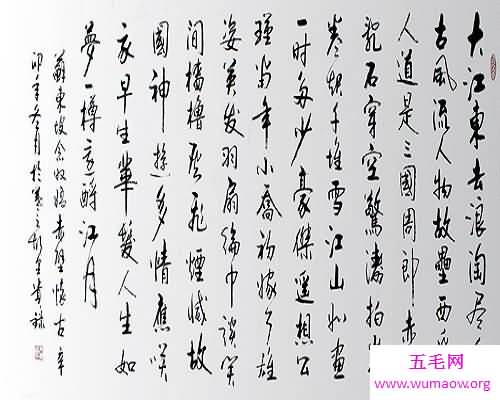 大江東去浪淘尽
古風流人物故壘西
人道是三國周郎赤
乱石穿空驚濤拍
卷起千堆雪江山如畫
一時多少豪傑遥想公
瑾當年小喬初嫁了雄
姿英发羽扇綸巾談笑
间檣櫓灰飛煙滅故
國神遊多情應笑
我早生華髮人生如
夢一樽還酹江月
蘇東坡念奴嬌赤壁懷古辛
卯年冬月於
五毛网
www.wumaow.org